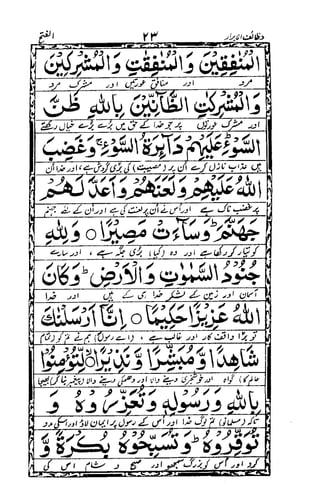 وظائف الابرار ٢٣ الفتح
الْمُنٰفِقِيْنَ وَالْمُنٰفِقٰتِ وَالْمُشْرِكِيْنَ
مرد اور منافق عورتیں اور مشرک مرد
وَالْمُشْرِكٰتِ الظَّآنِّيْنَ بِاللّٰهِ ظَنَّ
اور مشرک عورتوں پر جو خدا کے حق میں برے برے خیال رکھتے
السَّوْءِ عَلَيْهِمْ دَآئِرَةُ السَّوْءِ وَغَضِبَ
ہیں عذاب نازل کرے ان پر (مصیبت) کی بری گردش ہے اور خدا ان
اللّٰهُ عَلَيْهِمْ وَلَعَنَهُمْ وَاَعَدَّ لَهُمْ
پر غضب ناک ہے اور اس نے ان پر لعنت کی ہے اور ان کے لئے جہنم
جَهَنَّمَ وَسَآءَتْ مَصِيْرًا ○ وَلِلّٰهِ
کو تیار کر رکھا ہے اور وہ (کیا) بری جگہ ہے اور سارے
جُنُوْدُ السَّمٰوٰتِ وَالْاَرْضِ وَكَانَ
آسمان اور زمین کے لشکر خدا ہی کے ہیں اور خدا
اللّٰهُ عَزِيْزًا حَكِيْمًا ○ اِنَّآ اَرْسَلْنٰكَ
تو بڑا واقف کار اور غالب ہے (اے رسول) ہم نے تم کو (تمام
شَاهِدًا وَّمُبَشِّرًا وَّنَذِيْرًا ○ لِتُؤْمِنُوْا
عالم کا) گواہ اور خوشخبری دینے والا اور دھمکی دینے والا (پیغمبر بنا کر) بھیجا
بِاللّٰهِ وَرَسُوْلِهٖ وَتُعَزِّرُوْهُ وَ
تاکہ (مسلمانو) تم لوگ خدا اور اس کے رسول پر ایمان لاؤ اور اسکی مدد
تُوَقِّرُوْهُ وَتُسَبِّحُوْهُ بُكْرَةً وَّ
کرو اور اس کو بزرگ سمجھو اور صبح و شام اس کی